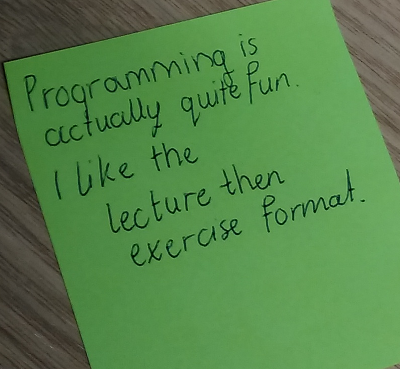 Programming is
actually quite fun.
I like the
lecture then
exercise format.